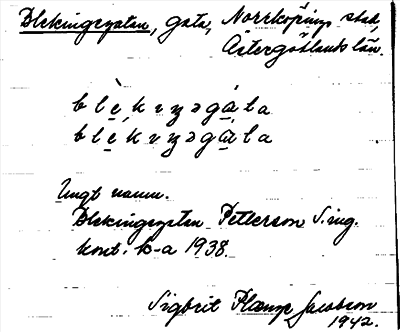 Blekingegatan, gata, Norrköpings stad,
Östergötlands län.
blèkıŋəgáta
blékıŋəgàta
Ungt namn.
Blekingegatan Petterson S. ing.
kont. k-a 1938.
Sigbrit Plænge Jacobson
1942.